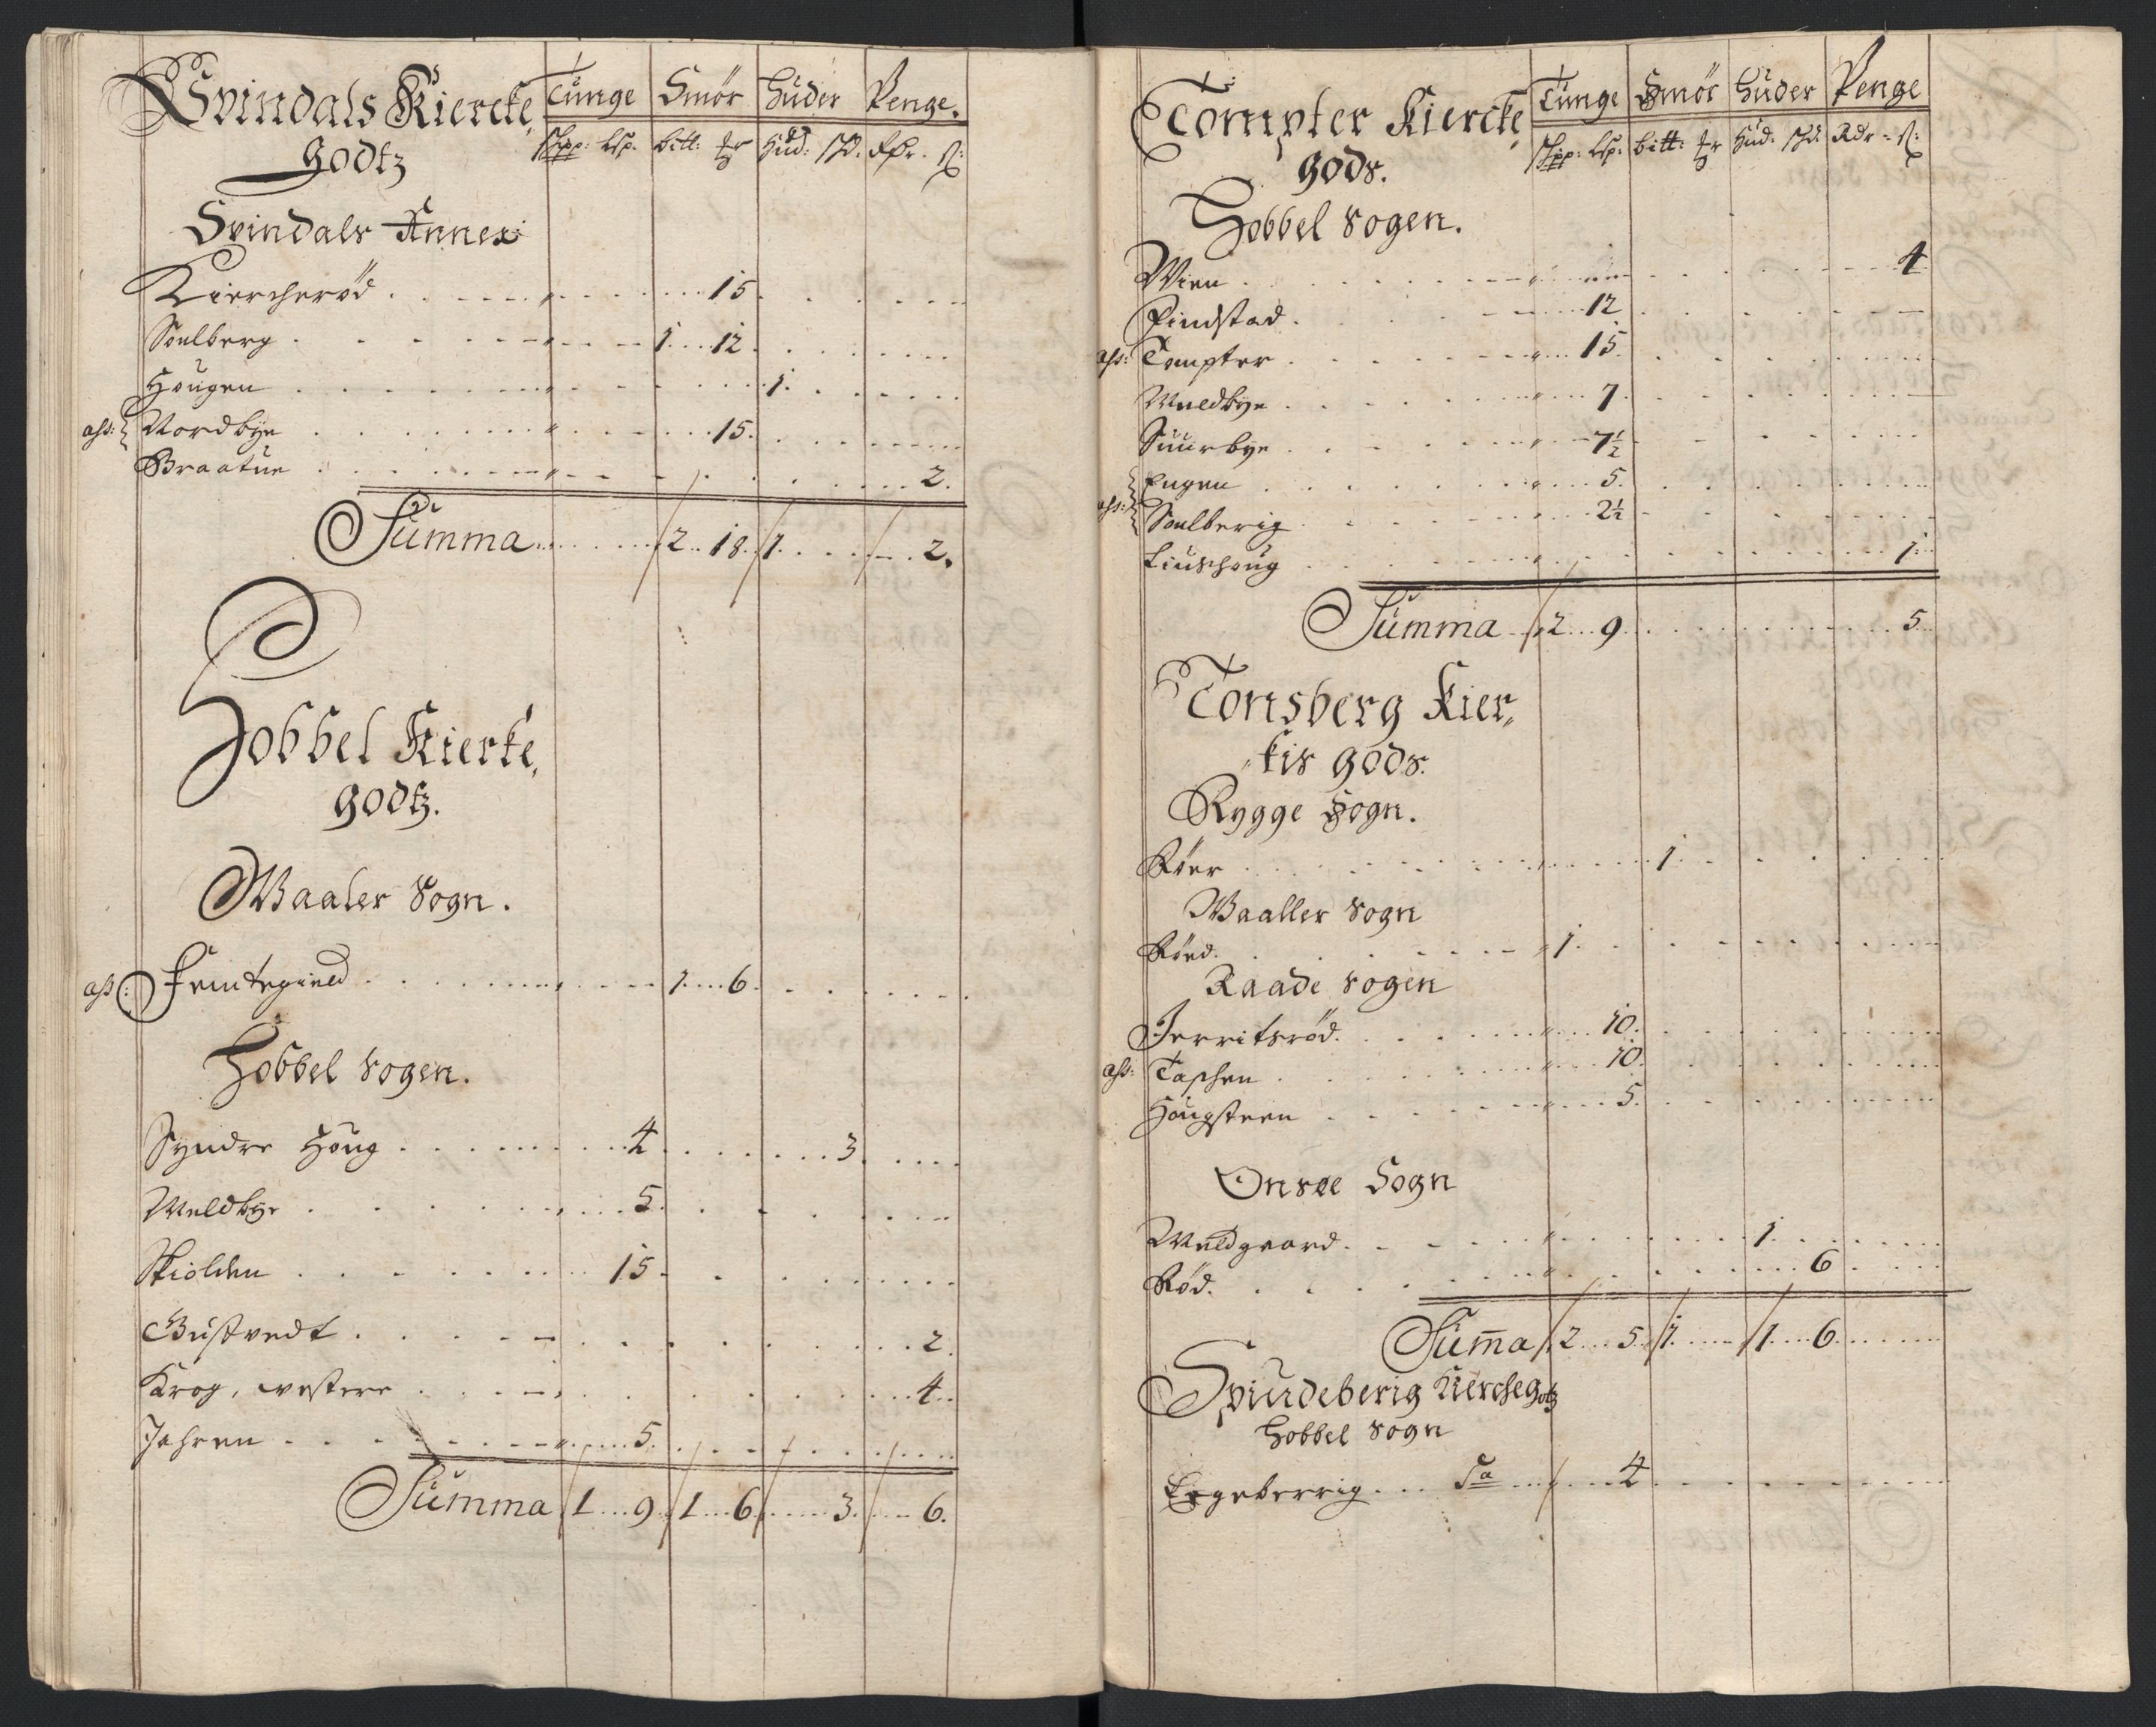 Svindals Kiercke Tünge Smör Hüder Penge.
Godtz Schpp: Lsp. bitt: Hud: Rdr.
Svindals Annex
Kiercherød 15
Soelberg 1 12
Hougen 1
ahs: Nordbye 15
Braatüe 2
Summa 2 18 1 2
Hobbel Kierke
godtz.
Waaler Sogn.
ahs: Femtegield 1 6
Hobbel Sogen.
Syndre Houg 4 3
Meldbye 5
Skiolden 15
Büstvedt 2
Krog, westere 4
Jahren 5
Summa 1 9 1 6 3 6
Tompter Kiercke Tünge Smör Hüder Penge
gods. Schpp: Lsp: bitt: Hud: Rdr
Hobbel Sogen.
Wien 4
Findstad 12
ahs: Tompter 15
Meldbye 7
Suurbye 7½
Engen 5
ahs: Soelberig 2½
Liushoug 1
Summa 2 9 5
Tomsberg Kier
kis gods.
Rygge Sogn.
Röer 1
Waaller Sogn
Röed 1
Raade Sogen
Jerritsröd 10
ahs: Taschen 10
Hougsteen 5
Onsøe Sogn
Meldgaard 1
Röd. 6
Summa 2 5 1 1 6
Spiudeberig Kierchegotz
Hobbel Sogn
Egeberrig Sa 4